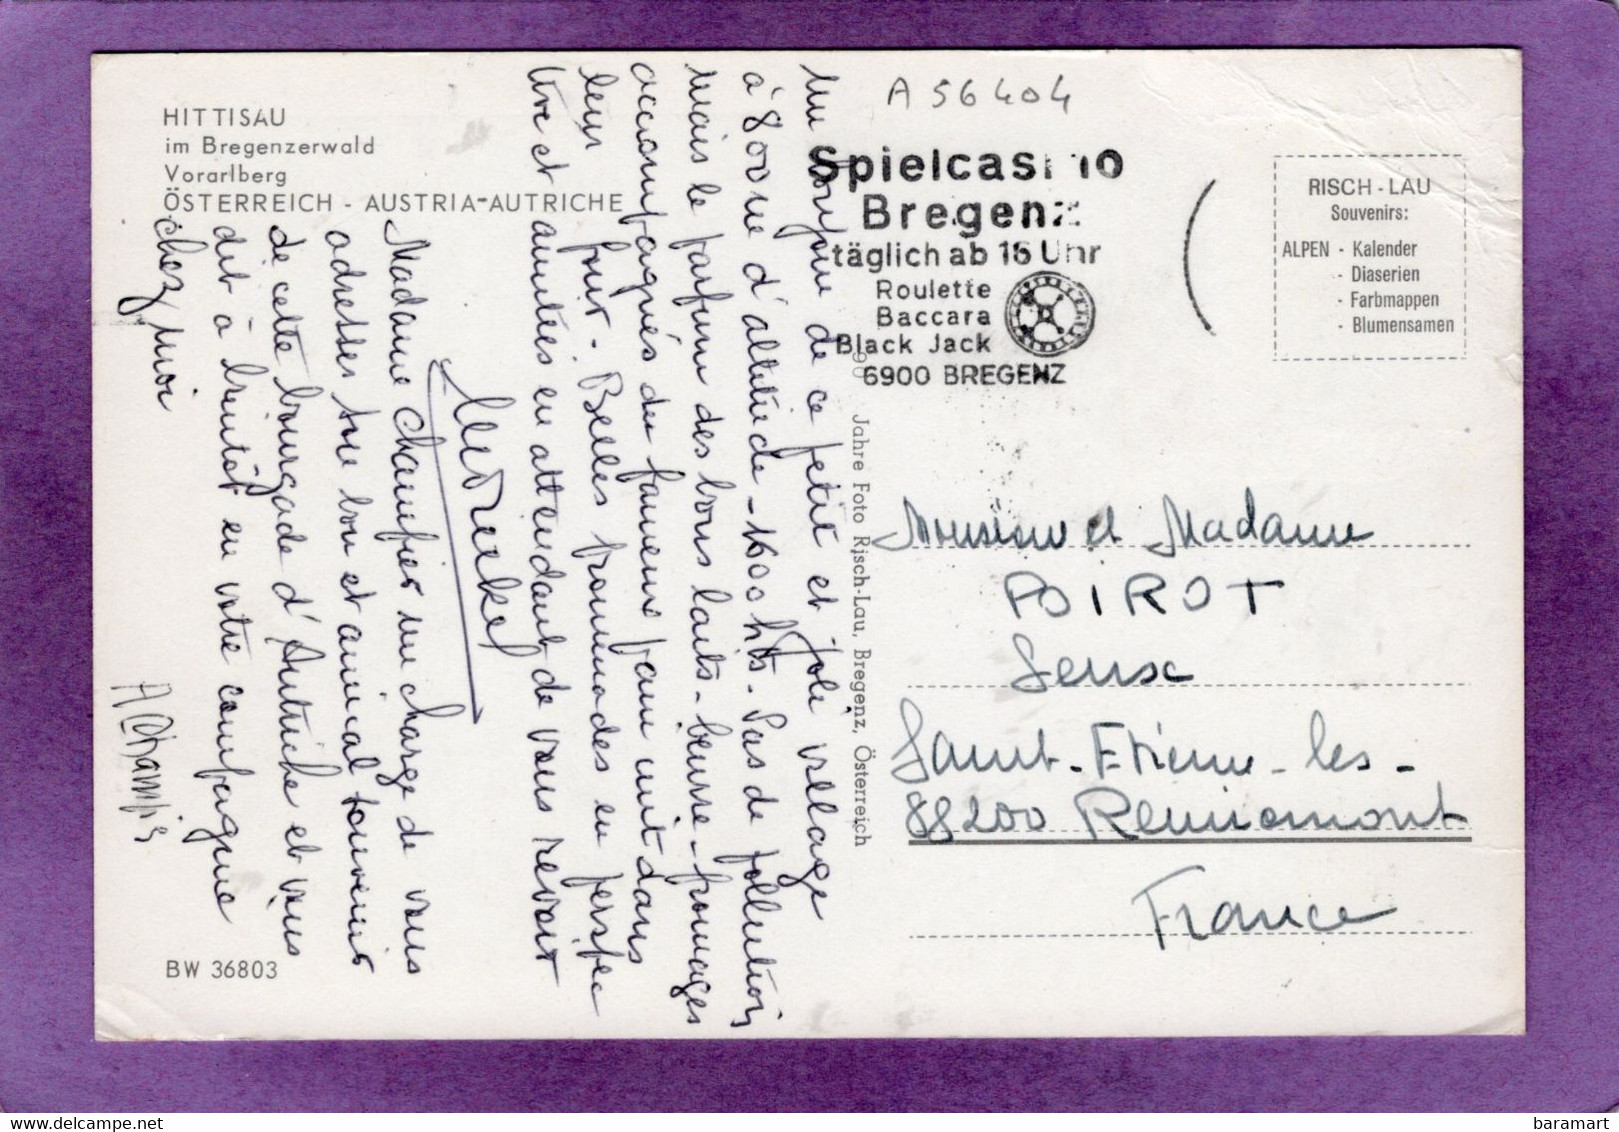 HITTISAU
im Bregenzerwald
Vorarlberg
ÖSTERREICH - AUSTRIA-AUTRICHE
A 56404
Spielcasino
Bregenz
täglich ab 16 Uhr
Roulette
Baccara
Black Jack
6900 BREGENZ
RISCH-LAU
Souvenirs:
ALPEN - Kalender
- Diaserien
- Farbmappen
- Blumensamen
Un bonjour de ce petit et joli village
à 800 m d'altitude - 1600 hts. Pas de pollution
mais le parfum des bons laits - beurre - fromages
accompagnés du fameux pain cuit dans
leur four. Belles promenades en perspec
tive et amitiés en attendant de vous revoir
Madame Champier me charge de vous
adresser son bon et amical souvenir
de cette bourgade d'Autriche et vous
dit à bientôt en votre compagnie
chez moi
A Champier
90 Jahre Foto Risch-Lau, Bregenz, Österreich
Monsieur et Madame
POIROT
Seux
Saint-Etienne-les-
88200 Remiremont
France
BW 36803
baramart